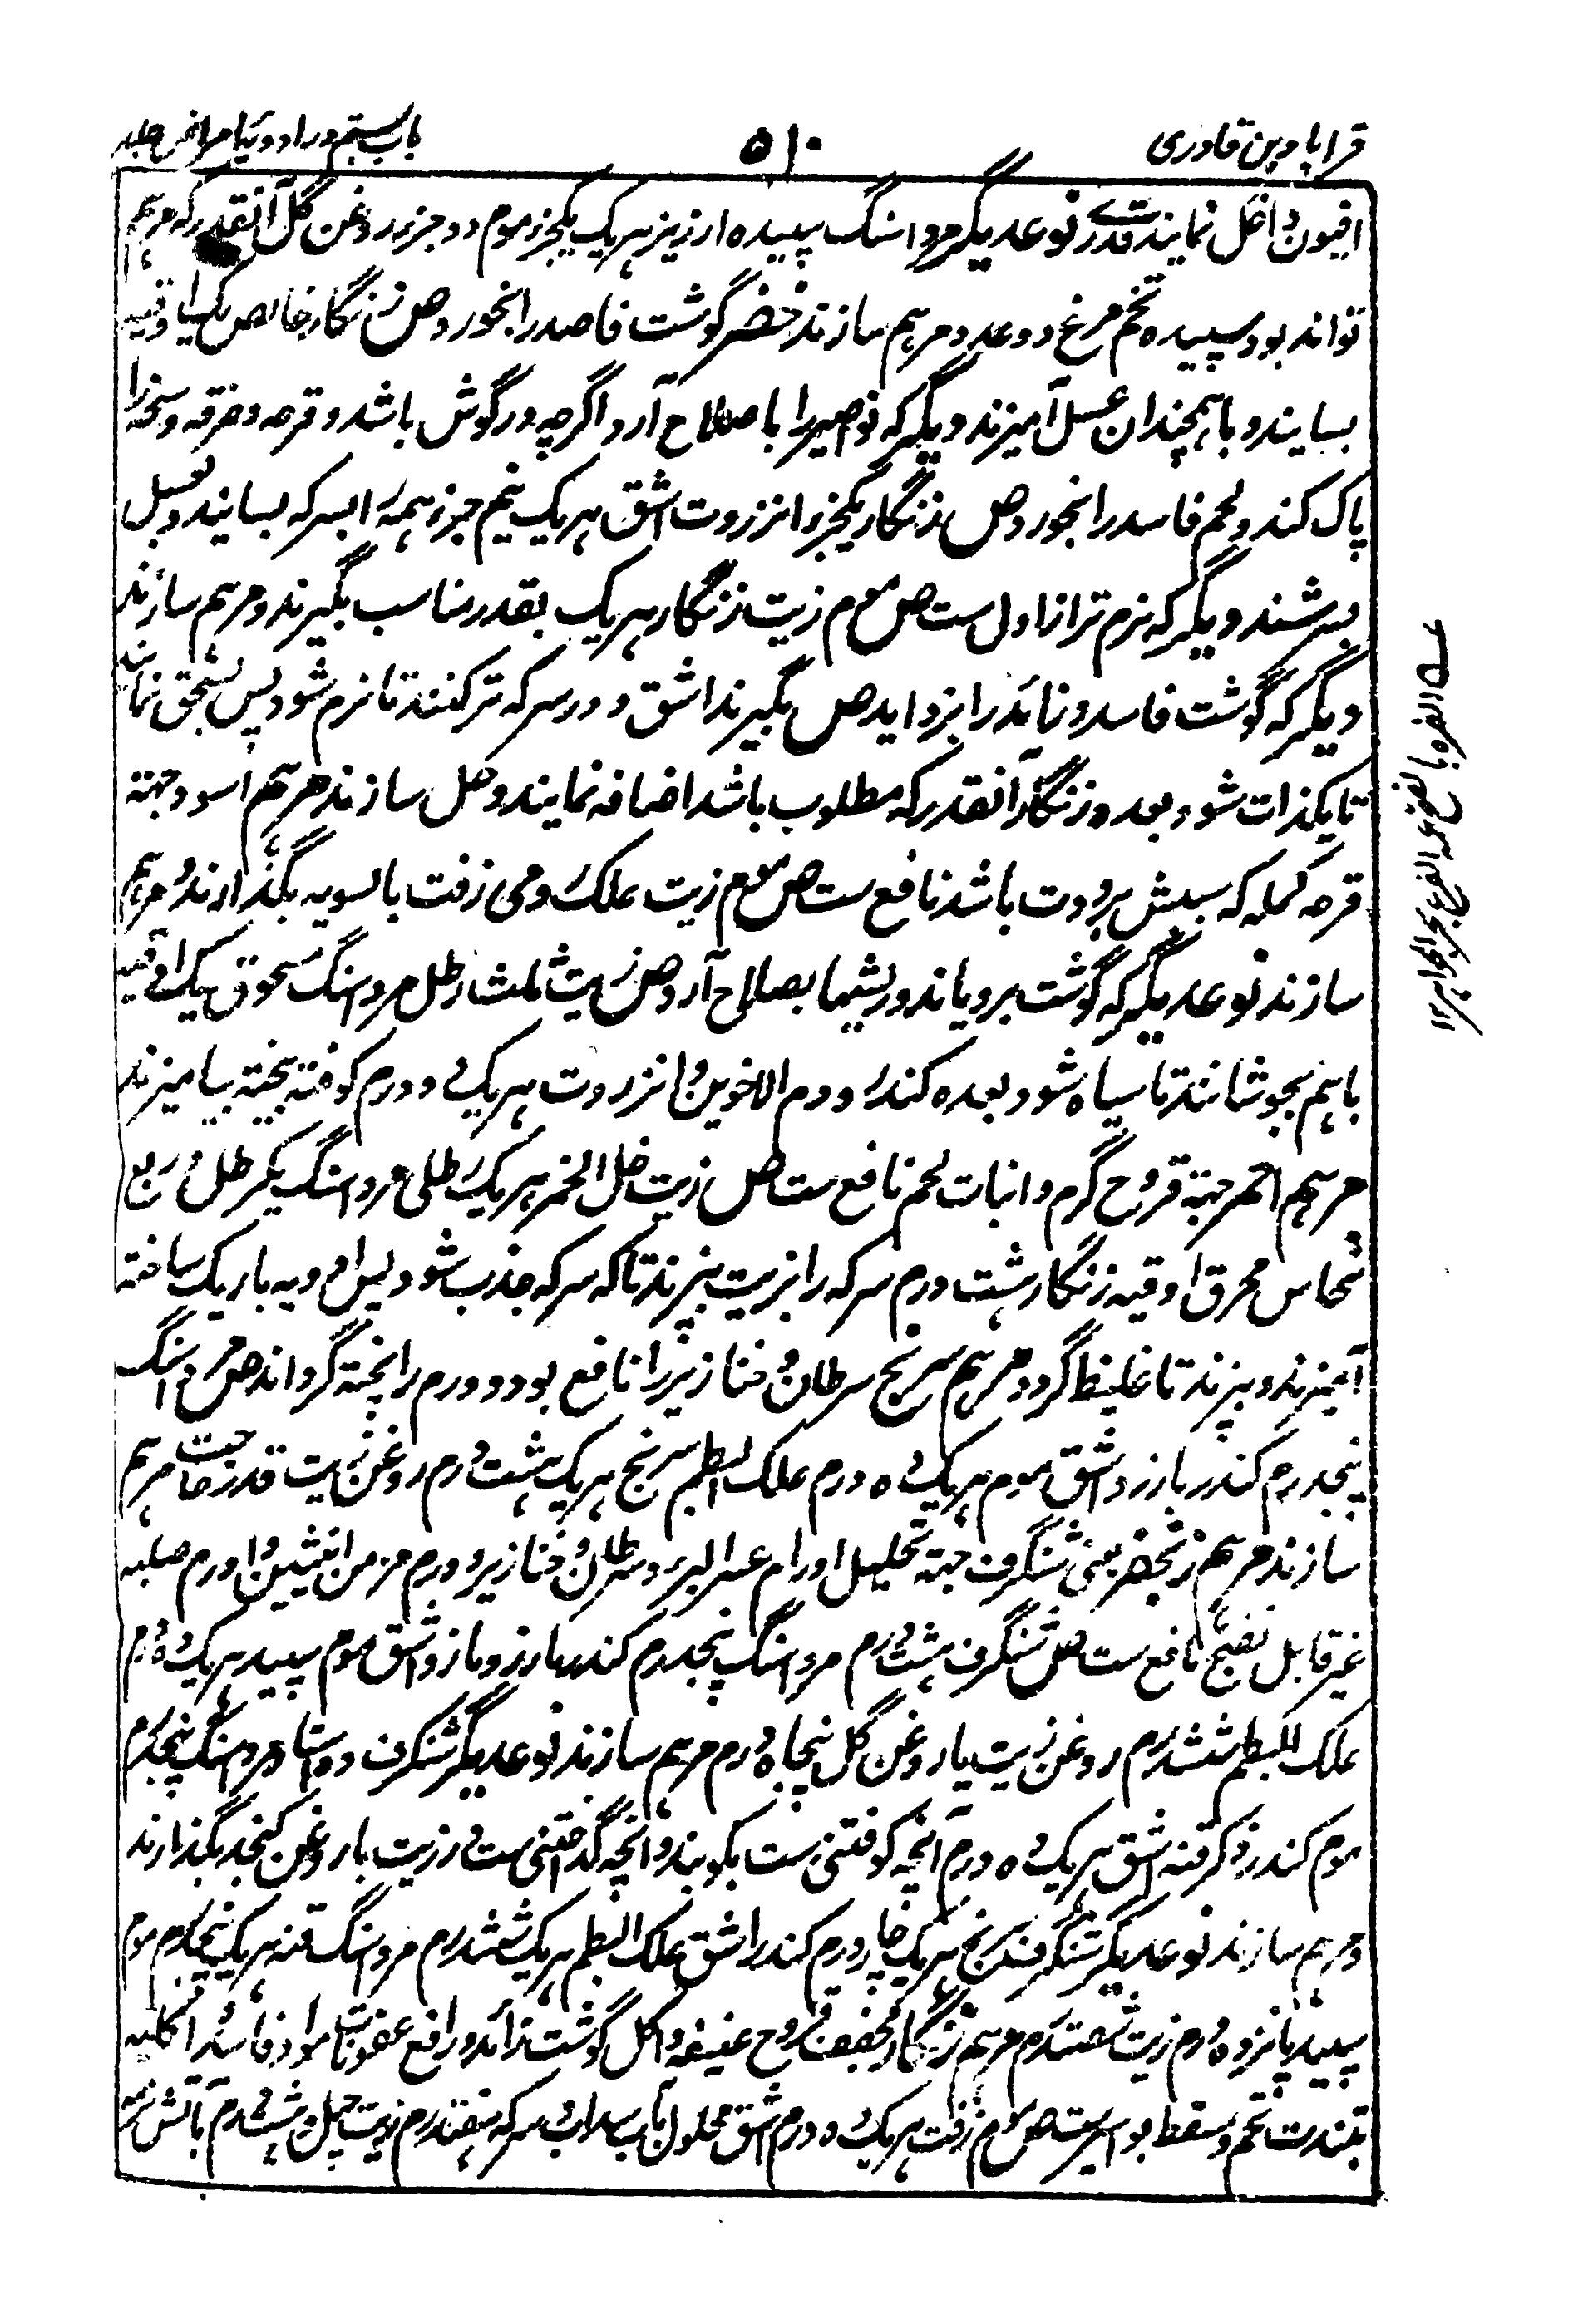 قرابادین قادری
۵۱۰
باب بستم در ادویه امراض جلد
افیون داخل نمایند قدرے نوعدیگر مرداسنگ سپیده ارزیز هریک یکجز موم دو جزء روغن گل آنقدر که مرهم
تواند بود سپیده تخم مرغ دو عدد مرهم سازند خضر گوشت فاسد را بخورد ص زنگار خالص یک اوقیه
بسایند و باهمچندان عسل آمیزند دیگر که نواصیر را باصلاح آرد اگرچه در گوش باشد و قرحه و خرقه وسخ را
پاک کند و لحم فاسد را بخورد ص زنگار یکجز انزروت اشق هریک نیم جزء همه را بسرکه بسایند و بعسل
بسرشند دیگر که نرم تر از اول ست ص موم زیت زنگار هریک بقدر مناسب بگیرند و مرهم سازند
دیگر که گوشت فاسد و زائد را بزداید ص بگیرند اشق و در سرکه تر کنند تا نرم شود پس بسحق نمایند
تا یکذات شود بعده زنگار آنقدر که مطلوب باشد اضافه نمایند و حل سازند مرهم اسود جهة
قرحه کمله که سببش برودت باشد نافع ست ص موم زیت علک رومی زفت بالسویه بگذارند و مرهم
سازند نوعدیگر که گوشت برویاند و ریشها بصلاح آرد ص زیت ثلث رطل مرداسنگ مسحوق یک اوقیه
باهم بجوشانند تا سیاه شود بعده کندر و دم الاخوین و انزروت هریک دو درم کوفته بیخته بیامیزند
مرهم احمر جهة قروح گرم و انبات لحم نافع ست ص زیت خل الخمر هریک رطلی مرداسنگ یکرطل و ربع
نحاس محرق اوقیه زنگار هشت درم سرکه را بزیت بپزند تا که سرکه جذب شود پس ادویه باریک ساخته
آمیزند و بپزند تا غلیظ گردد مرهم سرنج سرطان و خنازیر را نافع بود و ورم را پخته گرداند ص مرداسنگ
پنجدرم کندر بارزد اشق موم هریک ده درم علک البطم سرنج هریک هشت درم روغن زیت قدر حاجت مرهم
سازند مرهم زنجفر یعنی شنگرف جهة تحلیل اورام عسر البرء و سرطان و خنازیر و ورم مزمن انثیین و اورام صلبه
غیر قابل نضج نافع ست ص شنگرف هشت درم مرداسنگ پنجدرم کندر بارزد مازو اشق موم سپید هریک ده درم
علک البطم ششدرم روغن زیت یا روغن گل پنجاه درم مرهم سازند نوعدیگر شنگرف دو مرداسنگ پنجدرم
موم کندر قنه اشق هریک ده درم آنچه کوفتنی ست بکوبند و آنچه گداختنی ست در زیت یا روغن کنجد بگذارند
و مرهم سازند نوعدیگر شنگرف سرنج هریک چار درم کندر اشق علک البطم هریک ششدرم مرداسنگ قنه هریک پنجدرم موم
سپید پانزده درم زیت شصتدرم مرهم زنگار مجفف قروح عفنه و اکل گوشت زائد و رافع عفونات مواد فاسد اکله
بتندست تخم و مسقط بواسیرست ص موم زفت هریک ده درم اشق محلول بآب سداب سرکه هفتدرم زیت چهل و هشت درم بآتش
القرع بالفتح بحر الجواهر ۱۲